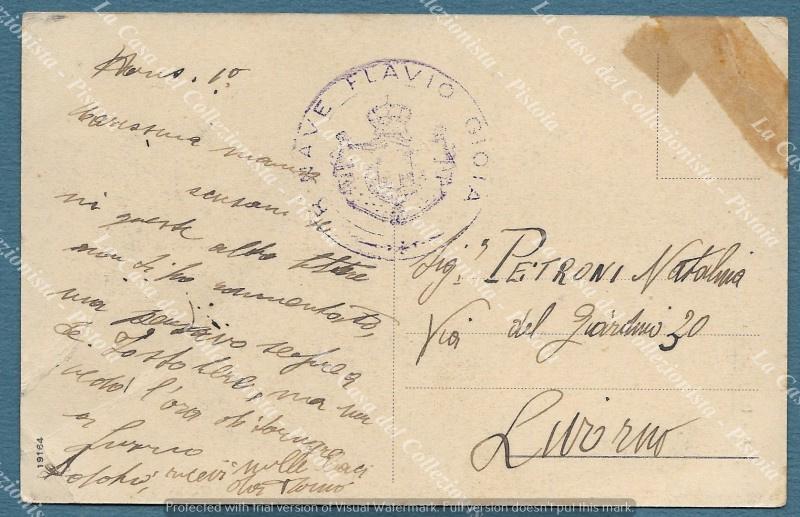 Carissima mamma
scusami se
in queste altre lettere
non ti ho rammentato,
ma pensavo sempre a
te.
vedo l'ora di
a Livorno
ricevi mille baci
R NAVE FLAVIO GIOIA
Sig.ª PETRONI Natalina
Via del Giardino 20
Livorno
19164
La Casa del Collezionista - Pistoia
Protected with trial version of Visual Watermark. Full version doesn't put this mark.